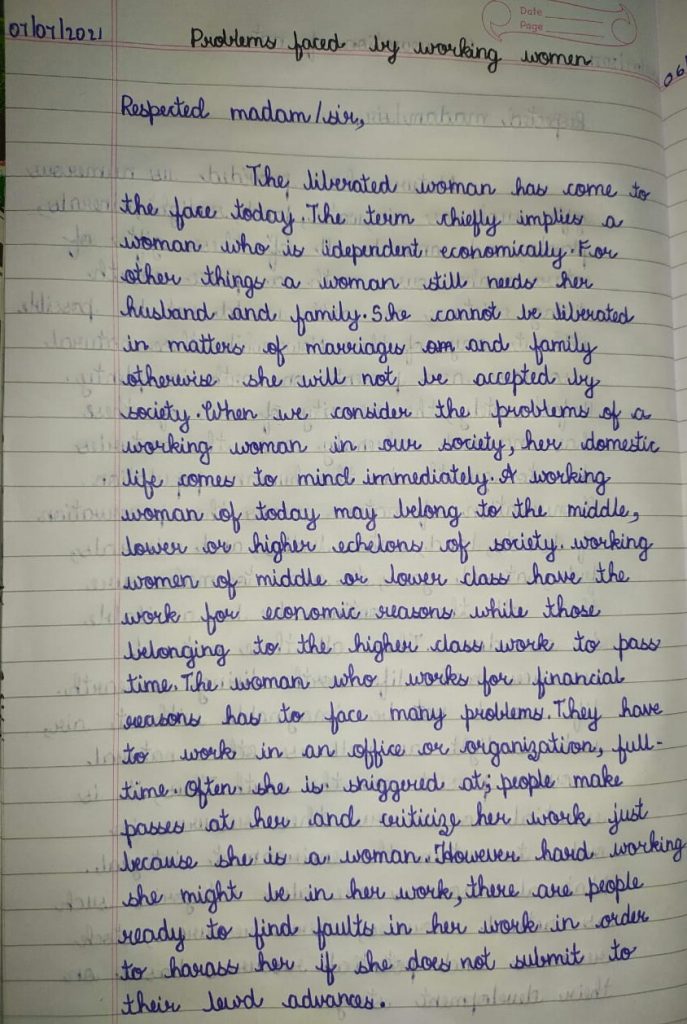 07/07/2021
Date
Page
Problems faced by working women
06/
Respected madam/sir,
The liberated woman has come to
the face today. The term chiefly implies a
woman who is idependent economically. For
other things a woman still needs her
husband and family. She cannot be liberated
in matters of marriages and family
otherwise she will not be accepted by
society. When we consider the problems of a
working woman in our society, her domestic
life comes to mind immediately. A working
woman of today may belong to the middle,
lower or higher echelons of society. working
women of middle or lower class have the
work for economic reasons while those
belonging to the higher class work to pass
time. The woman who works for financial
reasons has to face many problems. They have
to work in an office or organization, full-
time. Often she is sniggered at; people make
passes at her and criticize her work just
because she is a woman. However hard working
she might be in her work, there are people
ready to find faults in her work in order
to harass her if she does not submit to
their lewd advances.